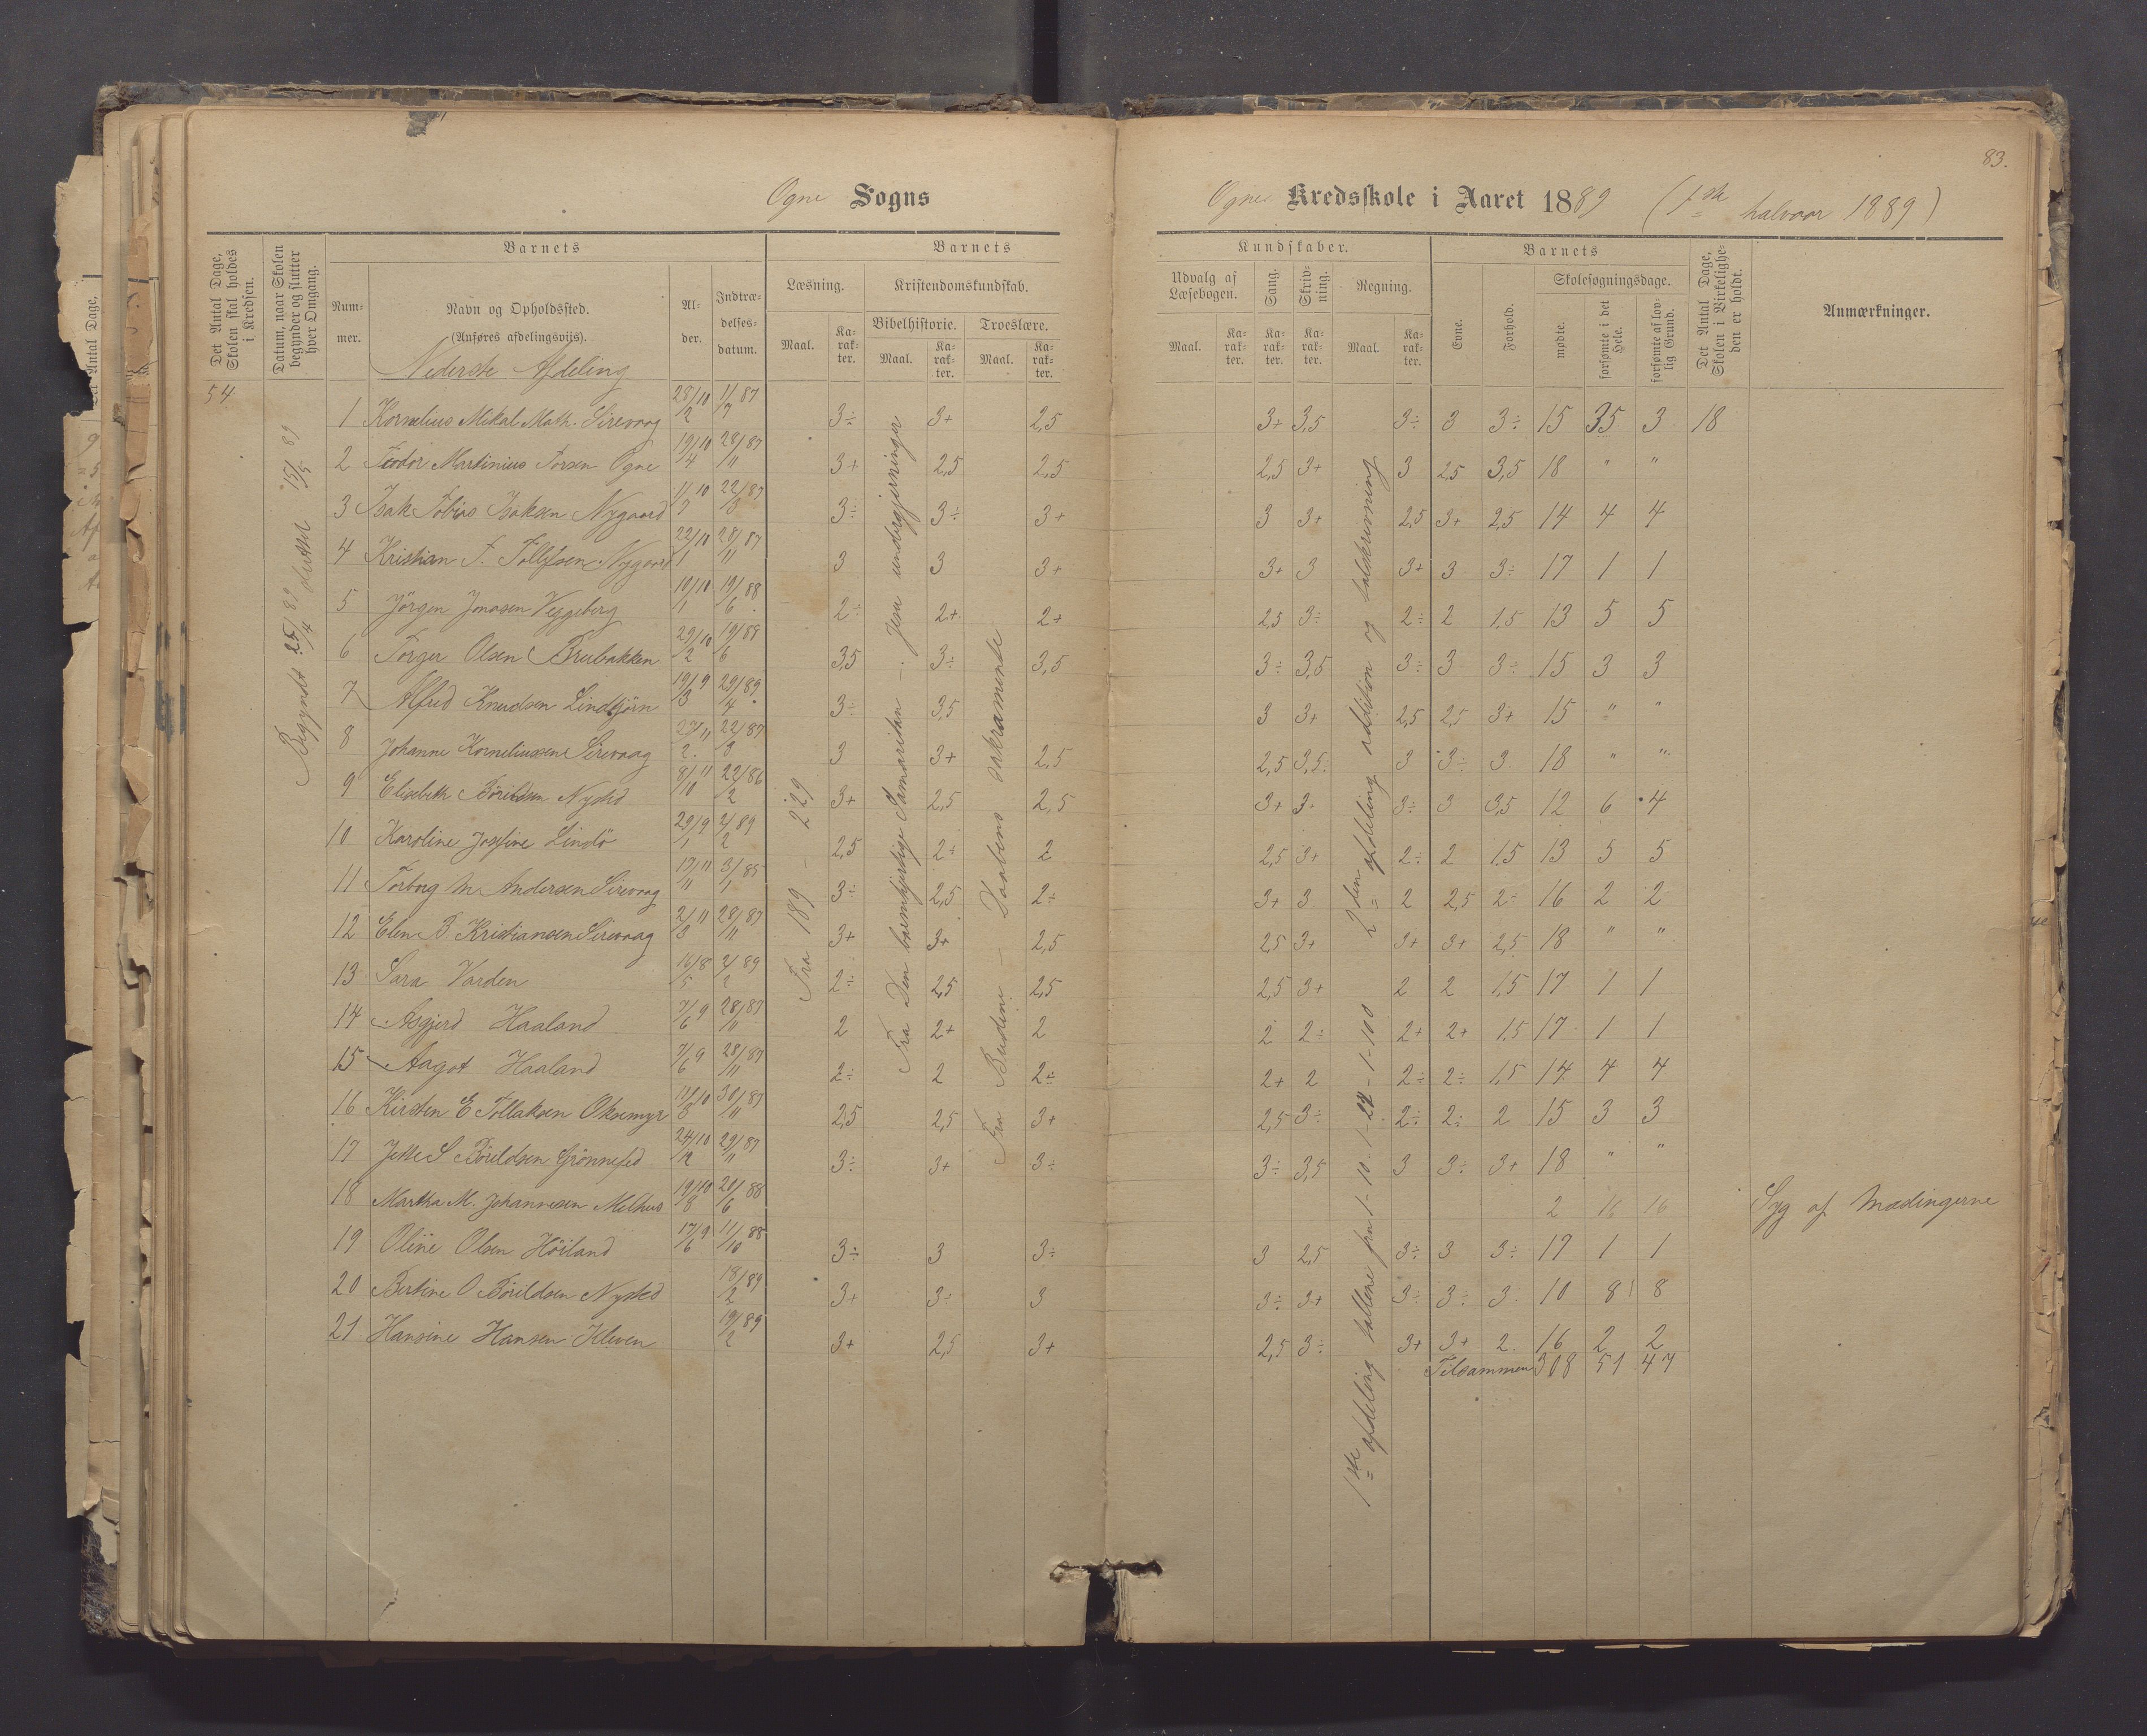 83.
Ogne Sogns
Ogne Kredsskole i Aaret 1889 (1ste halvaar 1889)
Det Antal Dage, Skolen skal holdes i Kredsen.
Datum, naar Skolen begynder og slutter hver Omgang.
Barnets
Nummer.
Navn og Opholdssted.
(Anføres afdelingsviis).
Alder.
Indtrædelsesdatum.
Barnets
Læsning.
Maal.
Karakter.
Kristendomskundskab.
Bibelhistorie.
Maal.
Karakter.
Troeslære.
Maal.
Karakter.
Kundskaber.
Udvalg af Læsebogen.
Maal.
Karakter.
Sang.
Karakter.
Skrivning.
Karakter.
Regning.
Maal.
Karakter.
Barnets
Evne.
Forhold.
Skolesøgningsdage.
mødte.
forsømte i det Hele.
forsømte af lovlig Grund.
Det Antal Dage, Skolen i Virkeligheden er holdt.
Anmærkninger.
Nederste Afdeling
54
Begyndt 25/4 89 sluttet 15/5 89
Fra 189 - 229
Fra Den barmhjertige Samaritan - Jesu undergjerninger
Fra Budene - Daabens sakramente
1ste afdeling tallene fra 1-10-1-24-1-100
2den afdeling addition og talskrivning
1 Kornelius Mikal Math. Sirevaag 28/10 2 11/87 7 3÷ 3+ 2,5 3+ 3,5 3÷ 3 3÷ 15 35 3 18
2 Teodor Martinius Torsen Ogne 19/10 4 28/87 11 3+ 2,5 2,5 2,5 3+ 3 2,5 3,5 18 " "
3 Isak Tobias Isaksen Nygaard 11/10 3 22/87 3 3÷ 3÷ 3+ 3 3+ 2,5 3+ 2,5 14 4 4
4 Kristian T. Tollefsen Nygaard 22/10 1 28/87 11 3 3 3+ 3+ 3 3+ 3 3÷ 17 1 1
5 Jörgen Jonasen Veggeberg 10/10 1 19/88 6 2÷ 2+ 2+ 2,5 3÷ 2÷ 2 1,5 13 5 5
6 Torger Olsen Brubakken 29/10 2 19/88 6 3,5 3÷ 3,5 3÷ 3,5 3÷ 3 3÷ 15 3 3
7 Alfred Knudsen Lindtjörn 19/9 3 29/89 4 3÷ 3,5 3 3+ 2,5 2,5 3+ 15 " "
8 Johanne Korneliussen Sirevaag 27/11 2 22/87 3 3 3+ 2,5 2,5 3,5 3 3÷ 3 18 " "
9 Elisabeth Böreldsen Nysted 8/11 10 22/86 2 3+ 2,5 2,5 3+ 3 3÷ 3 3,5 12 6 4
10 Karoline Josefine Lindö 29/9 1 2/89 2 2,5 2+ 2 2,5 3+ 2÷ 2 1,5 13 5 5
11 Torborg M Andersen Sirevaag 17/11 11 3/85 1 3÷ 2,5 2÷ 3+ 3 2 2,5 2÷ 16 2 2
12 Elen B Kristiansen Sirevaag 2/11 3 28/87 11 3+ 3+ 2,5 2,5 3+ 3+ 3+ 2,5 18 " "
13 Sara Varden 16/8 5 2/89 2 2÷ 2,5 2,5 2,5 3+ 2 2 1,5 17 1 1
14 Asgjerd Haaland 7/9 6 28/87 11 2 2+ 2 2 2÷ 2+ 2+ 1,5 17 1 1
15 Aagot Haaland 7/9 6 28/87 11 2÷ 2 2÷ 2+ 2 2÷ 2÷ 1,5 14 4 4
16 Kirsten E Tollaksen Oksemyr 11/10 8 30/87 11 2,5 2,5 3+ 2,5 3÷ 2÷ 2÷ 2 15 3 3
17 Jette S Böreldsen Grönnefed 24/10 12 29/87 11 3÷ 3+ 3÷ 3÷ 3,5 3 3÷ 3+ 18 " "
18 Martha M. Johannesen Melhus 19/10 8 20/88 6 2 16 16 Syg af Mæslingerne
19 Oline Olsen Höiland 17/9 6 11/88 10 3÷ 3 3÷ 3 2,5 3÷ 3 3÷ 17 1 1
20 Bertine O Böreldsen Nysted 18/89 2 3+ 3÷ 3 3÷ 3+ 3÷ 3÷ 3 10 8 8
21 Hansine Hansen Kleven 19/89 2 3+ 2,5 3+ 2,5 3÷ 3+ 3+ 2 16 2 2
Tilsammen 308 51 47